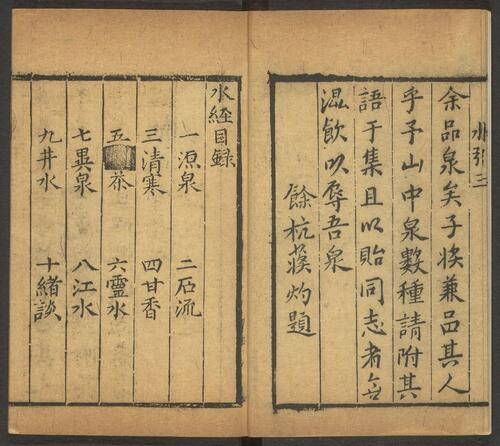 引三
余品泉矣子將兼品其人
乎予山中泉數種請附其
語于集且以貽同志者毋
混飲以辱吾泉
餘杭蔣灼題
水經目録
一源泉 二石流
三清寒 四甘香
五 茶 六靈水
七異泉 八江水
九井水 十緒談